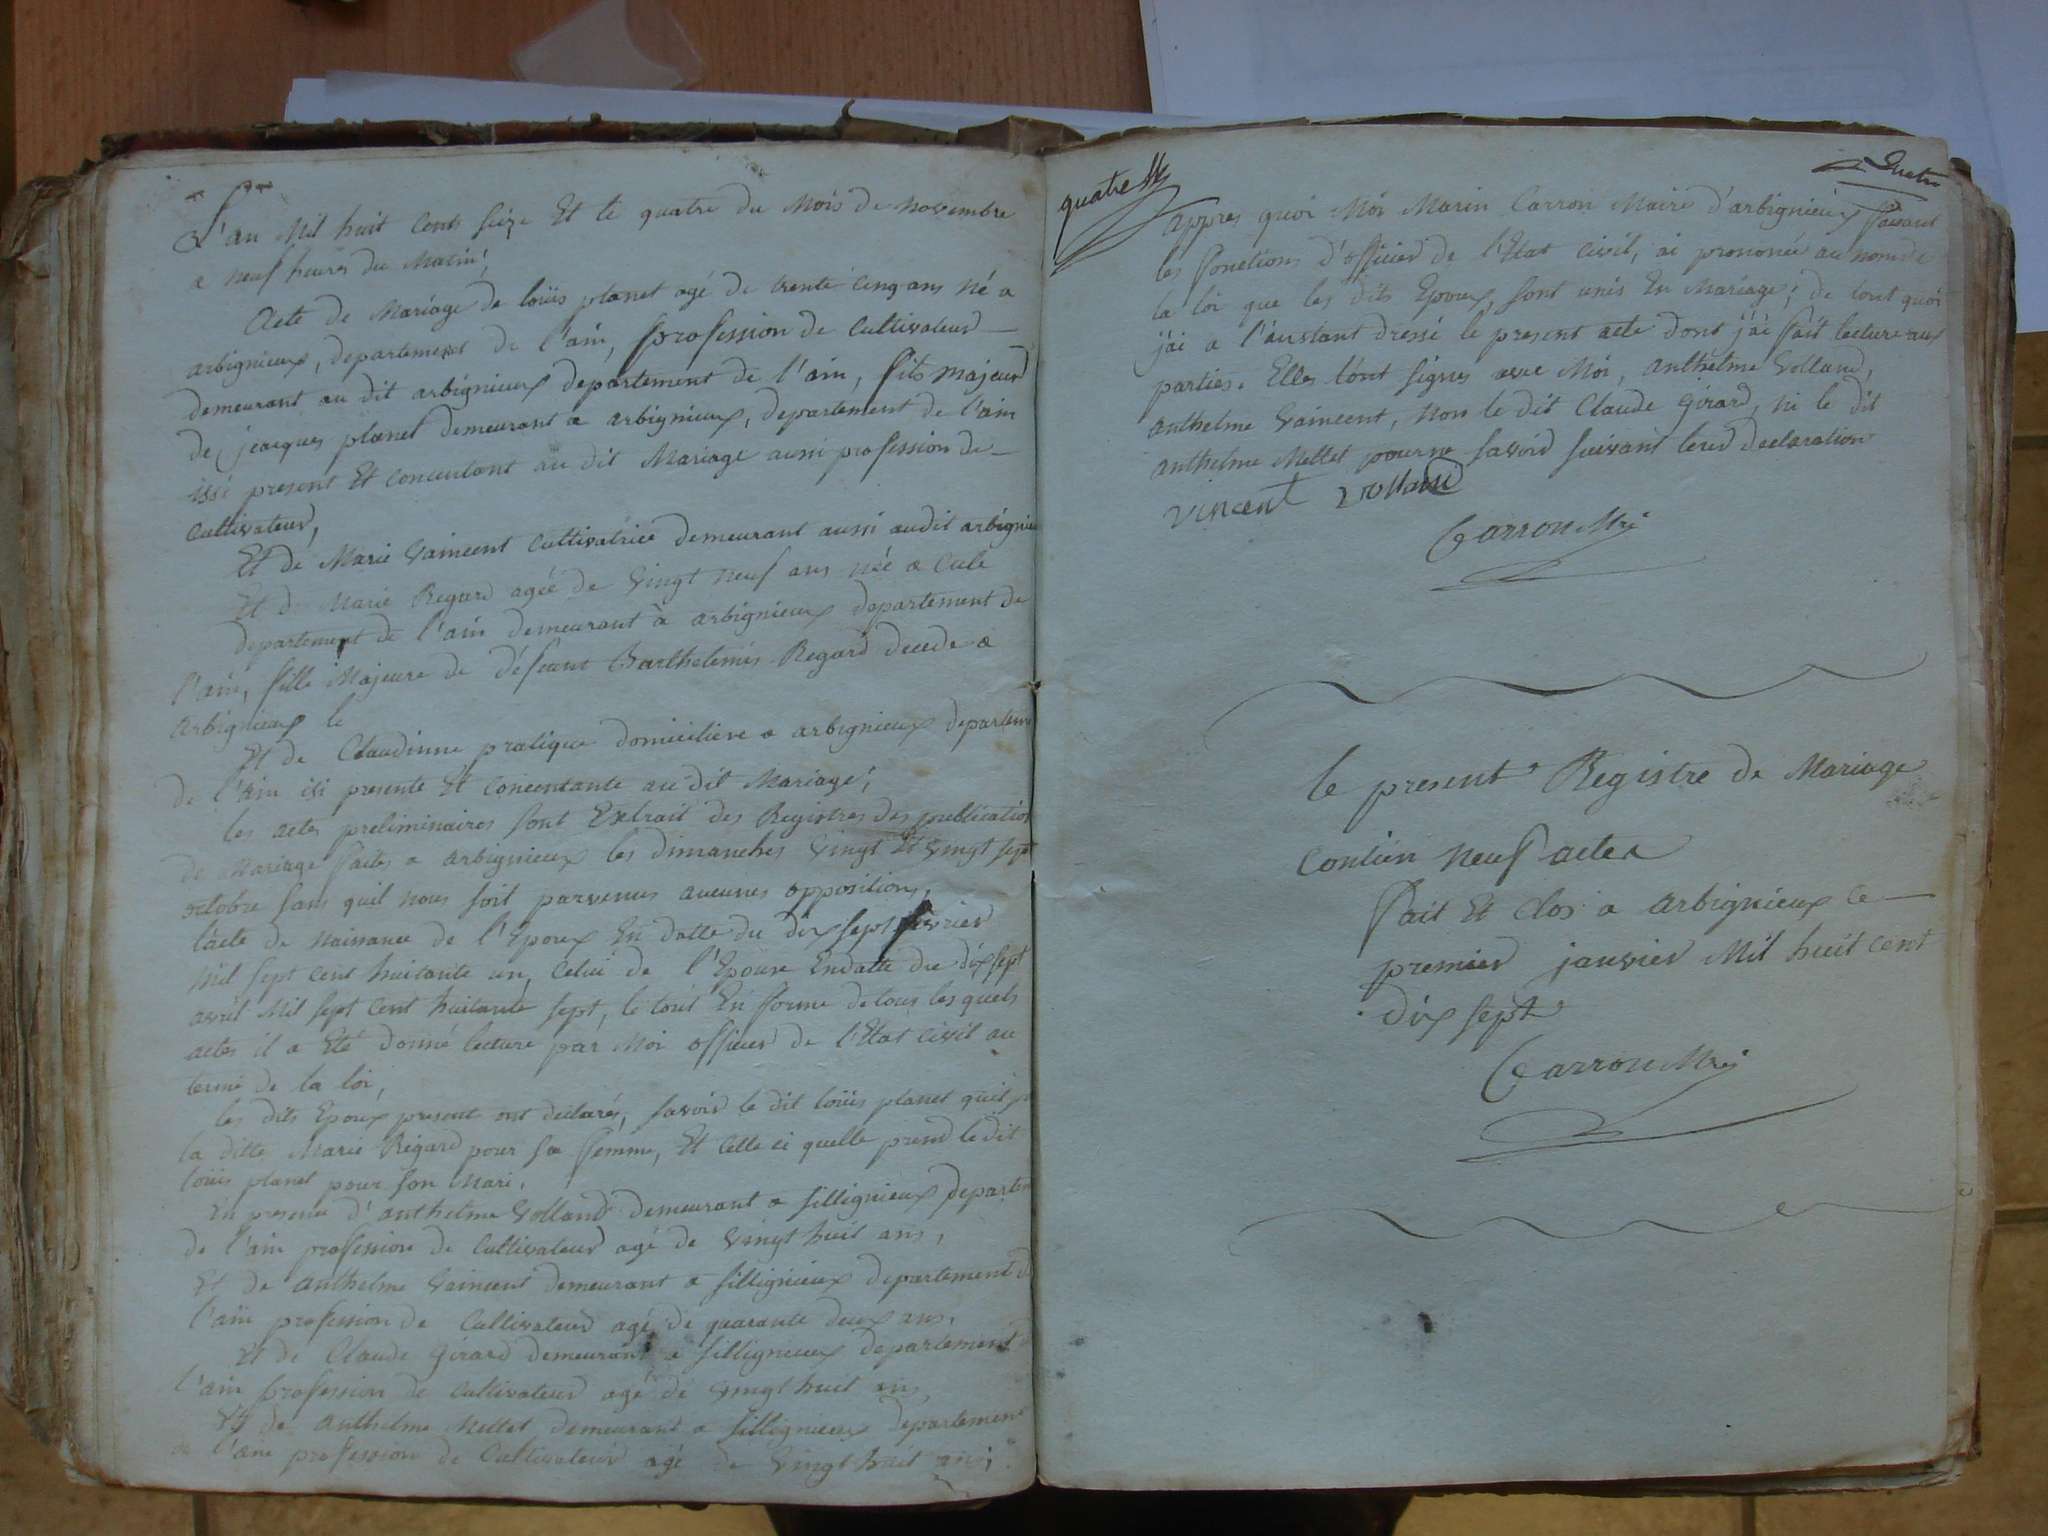 L'an Mil huit Cents Seize Et le quatre du Mois de Novembre
a neuf heures du Matin,
Acte de Mariage de loüis planet agé de trente cinq ans Né a
arbignieux, departement de l'ain, profession de Cultivateur
demeurant au dit arbignieux departement de l'ain, fils majeur
de jeacques planet demeurant a arbignieux, departement de l'ain
issi present Et Concentant au dit Mariage aussi profession de
Cultivateur,
Et de Marie Vaincent Cultivatrice demeurant aussi audit arbignieu
Et de Marie Regard agée de Vingt neuf ans née a Cule
departement de l'ain demeurant à arbignieux departement de
l'ain, fille Majeure de défeunt Barthelemis Regard decede a
arbignieux le
Et de Claudinne pratique domiciliere a arbignieux departeme
de l'ain isi presente Et Concentante au dit Mariage;
les actes preliminaires sont Extrait des Registres des publication
de Mariage faites a arbignieux les dimanches Vingt Et Vingt sept
octobre sans quil nous soit parvenus aucunes oppositions,
lacte de Naissance de l'Epoux En datte du dix sept fevrier
Mil sept cent huitante un, Celui de l'Epouse Endatte du dix sept
avril Mil sept Cent huitante sept, le tout En forme de tous les quels
actes il a Eté donné lecture par Moi officier de l'Etat Civil au
terme de la loi,
les dits Epoux present ont declarés, savoir le dit loüis planet quil p
la ditte Marie Regard pour sa femme, Et Celle ci quelle prend le dit
loüis planet pour son Mari.
En presence d'anthelme Volland demeurant a sillignieux departem
de l'ain profession de Cultivateur agé de Vingt huit ans,
Et de anthelme Vaincent demeurant a sillignieux departement d
l'ain profession de Cultivateur agé de quarante deux ans,
Et de Claude Girard demeurant a sillignieux departement
l'ain profession de Cultivateur agé de Vingt huit ans
Et de anthelme Mettet demeurant a sillignieux departement
de l'ain profession de Cultivateur agé de Vingt huit ans;
quatre
quatre
appres quoi Moi Marin Carron Maire d'arbignieux faisant
les fonctions d'officier de l'Etat Civil, ai prononcé au nom de
la loi que les dits Epoux, sont unis En Mariage; de tout quoi
j'ai a l'instant dressé le present acte dont j'ai fait lecture aux
parties. Elles l'ont signes avec Moi, anthelme Volland,
anthelme Vaincent, non le dit Claude Girard, ni le dit
anthelme Mettet pour ne savoir suivant leurs declaration
vincent volland
Carron Mre
le present Registre de Mariage
Contien neuf actes
fait Et Clos a arbignieux le
premier janvier Mil huit Cent
dix sept
Carron Mre